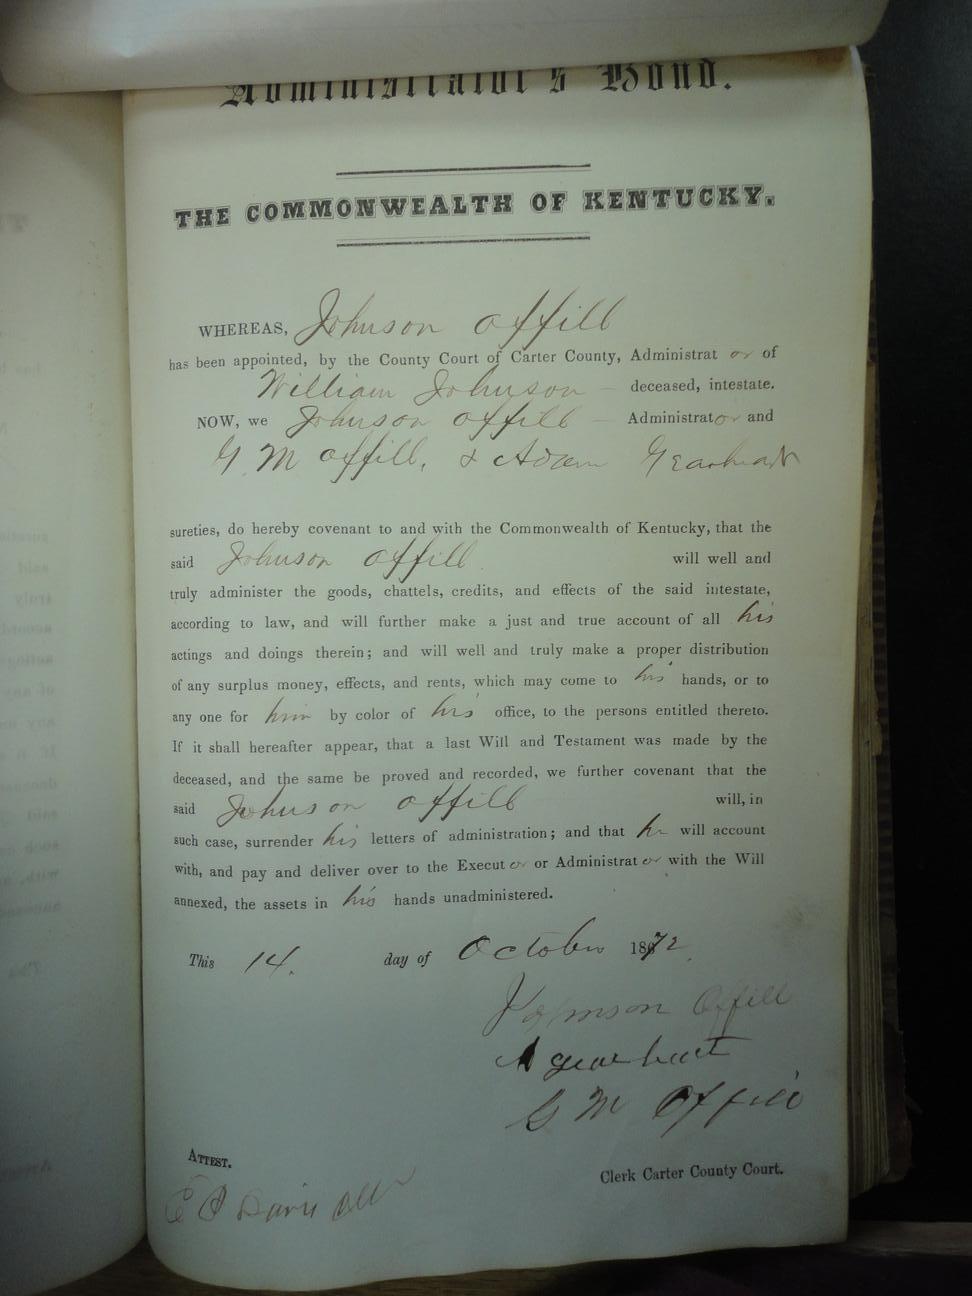 Administrator's Bond.
THE COMMONWEALTH OF KENTUCKY.
WHEREAS, Johnson Offill
has been appointed, by the County Court of Carter County, Administrat or of
William Johnson — deceased, intestate.
NOW, we Johnson Offill — Administrator and
G M Offill, & Adam Gearheart
sureties, do hereby covenant to and with the Commonwealth of Kentucky, that the
said Johnson Offill will well and
truly administer the goods, chattels, credits, and effects of the said intestate,
according to law, and will further make a just and true account of all his
actings and doings therein; and will well and truly make a proper distribution
of any surplus money, effects, and rents, which may come to his hands, or to
any one for him by color of his office, to the persons entitled thereto.
If it shall hereafter appear, that a last Will and Testament was made by the
deceased, and the same be proved and recorded, we further covenant that the
said Johnson Offill will, in
such case, surrender his letters of administration; and that he will account
with, and pay and deliver over to the Execut or or Administrat or with the Will
annexed, the assets in his hands unadministered.
This 14. day of October 1872.
Johnson Offill
A gearheart
G M Offill
ATTEST.
Clerk Carter County Court.
Davis